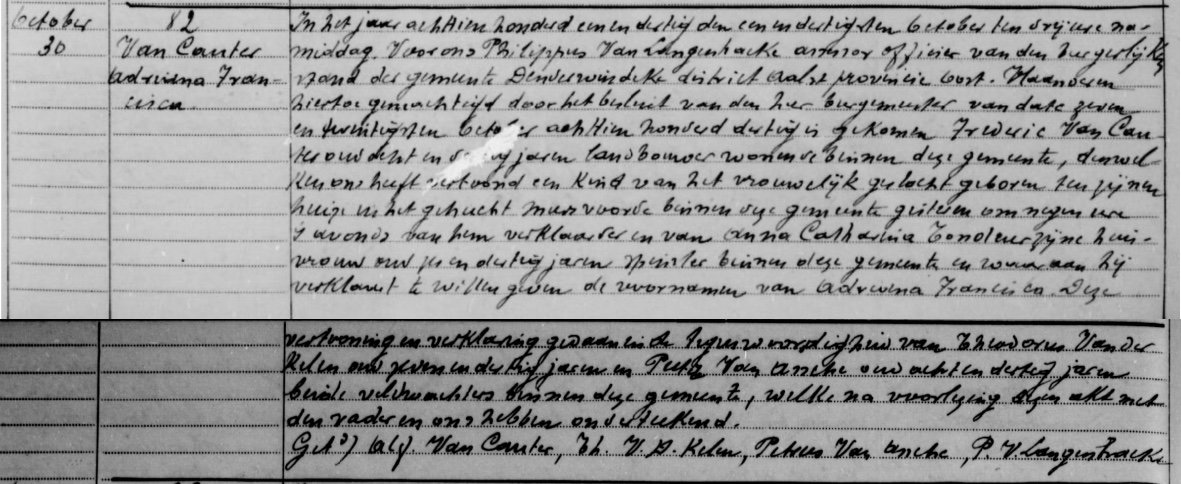 October
30
82
Van Cauter
Adriana Fran-
cisca.
In het jaar achttien honderd een en dertig den een en dertigsten October ten drij ure na-
middag. Voor ons Philippus Van Langenhacke assessor officier van den burgerlijken
stand der gemeente Denderwindeke district Aalst provincie Oost. Vlaanderen
hiertoe gemachtigd door het besluit van den heer burgemeester van date zeven
en twintigsten October achttien honderd dertig is gekomen Frederic Van Cau-
ter oud acht en jaren landbouwer wonende binnen deze gemeente, denwel-
ken ons heeft vertoond een kind van het vrouwelijk geslacht geboren ten zijnen
huize in het gehucht binnen deze gemeente gisteren om negen ure
s avonds van hem verklaarder en van Anna Catharina Tondeur zijne huis-
vrouw oud zes en dertig jaren spinster binnen deze gemeente en waar aan hij
verklaart te willen geven de voornamen van Adriana Francisca. Deze
vertooning en verklaring gedaan in de tegenwoordigheid van Theodorus Van der
Kelen oud zeven en dertig jaren en Van Assche oud acht en dertig jaren
beide veldwachters binnen deze gemeente, welke na voorlezing dezen akt met
den vader en ons hebben onderteekend.
Get^d) Van Cauter, Th. V. D. Kelen, Petrus Van Assche, P. V Langenhacke